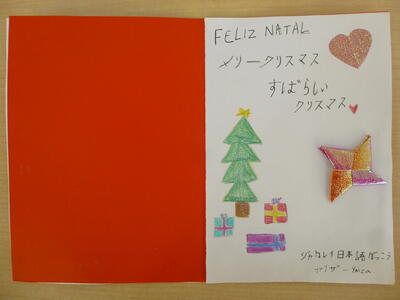 FELIZ NATAL
メリークリスマス
すばらしい
クリスマス
ジャカレイ日本語がっこう